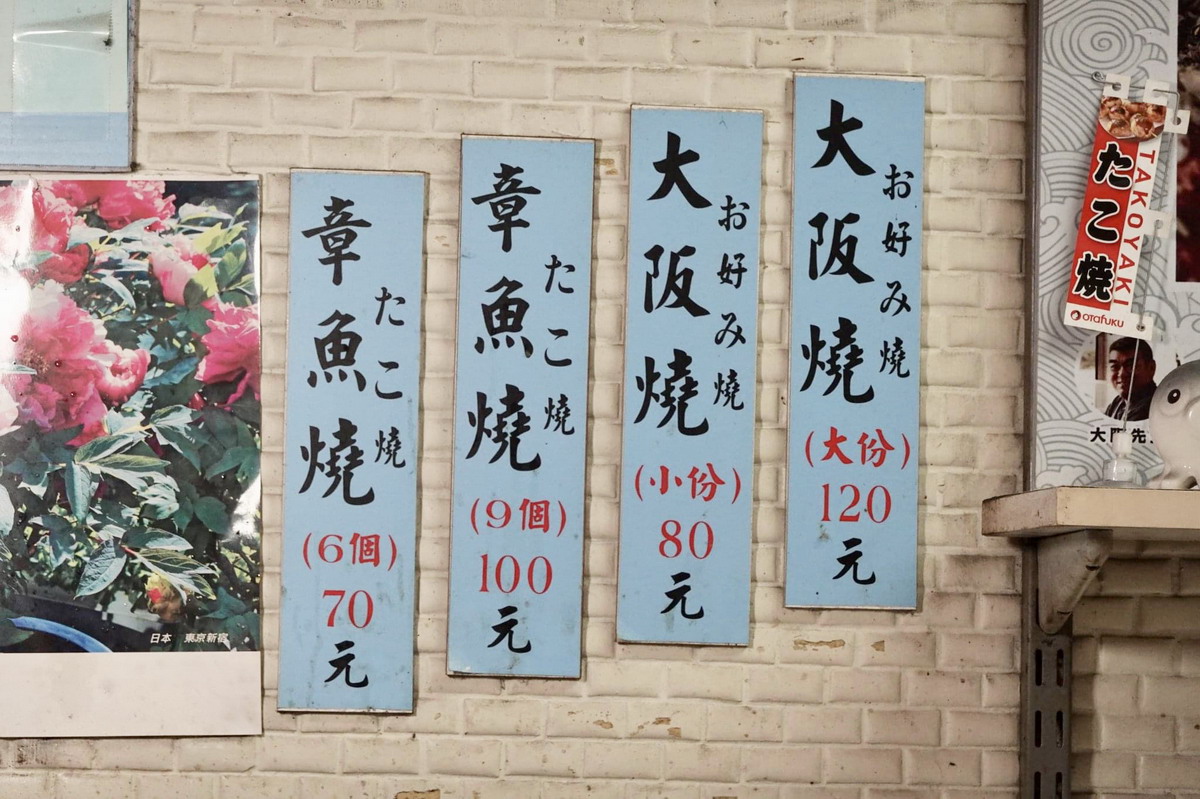 大阪燒
お好み燒
(大份)
120
元
大阪燒
お好み燒
(小份)
80
元
章魚燒
たこ燒
(9個)
100
元
章魚燒
たこ燒
(6個)
70
元
たこ焼
TAKOYAKI
Otafuku
日本 東京新宿